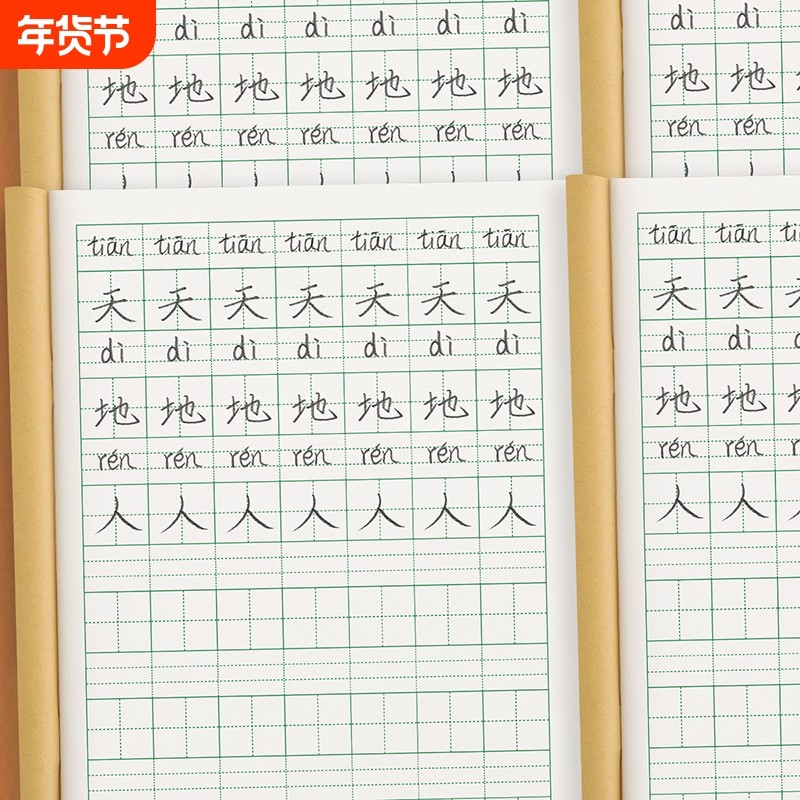 年货节
dì dì dì dì dì dì
地 地 地 地 地 地 地
rén rén rén rén rén rén rén
dì dì
地 地
rén rén
tiān tiān tiān tiān tiān tiān tiān
天 天 天 天 天 天 天
dì dì dì dì dì dì dì
地 地 地 地 地 地 地
rén rén rén rén rén rén rén
人 人 人 人 人 人 人
tiān tiān
天 天
dì dì
地 地
rén rén
人 人